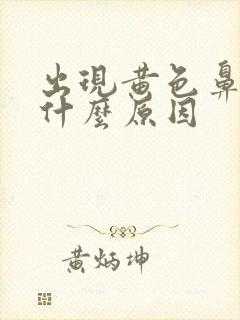 出現黄色鼻
什麼原因
黄炳坤